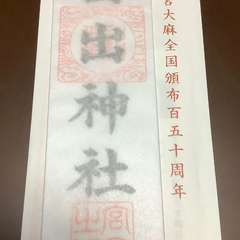 宮大麻全国頒布百五十周年
出神社
宮
之